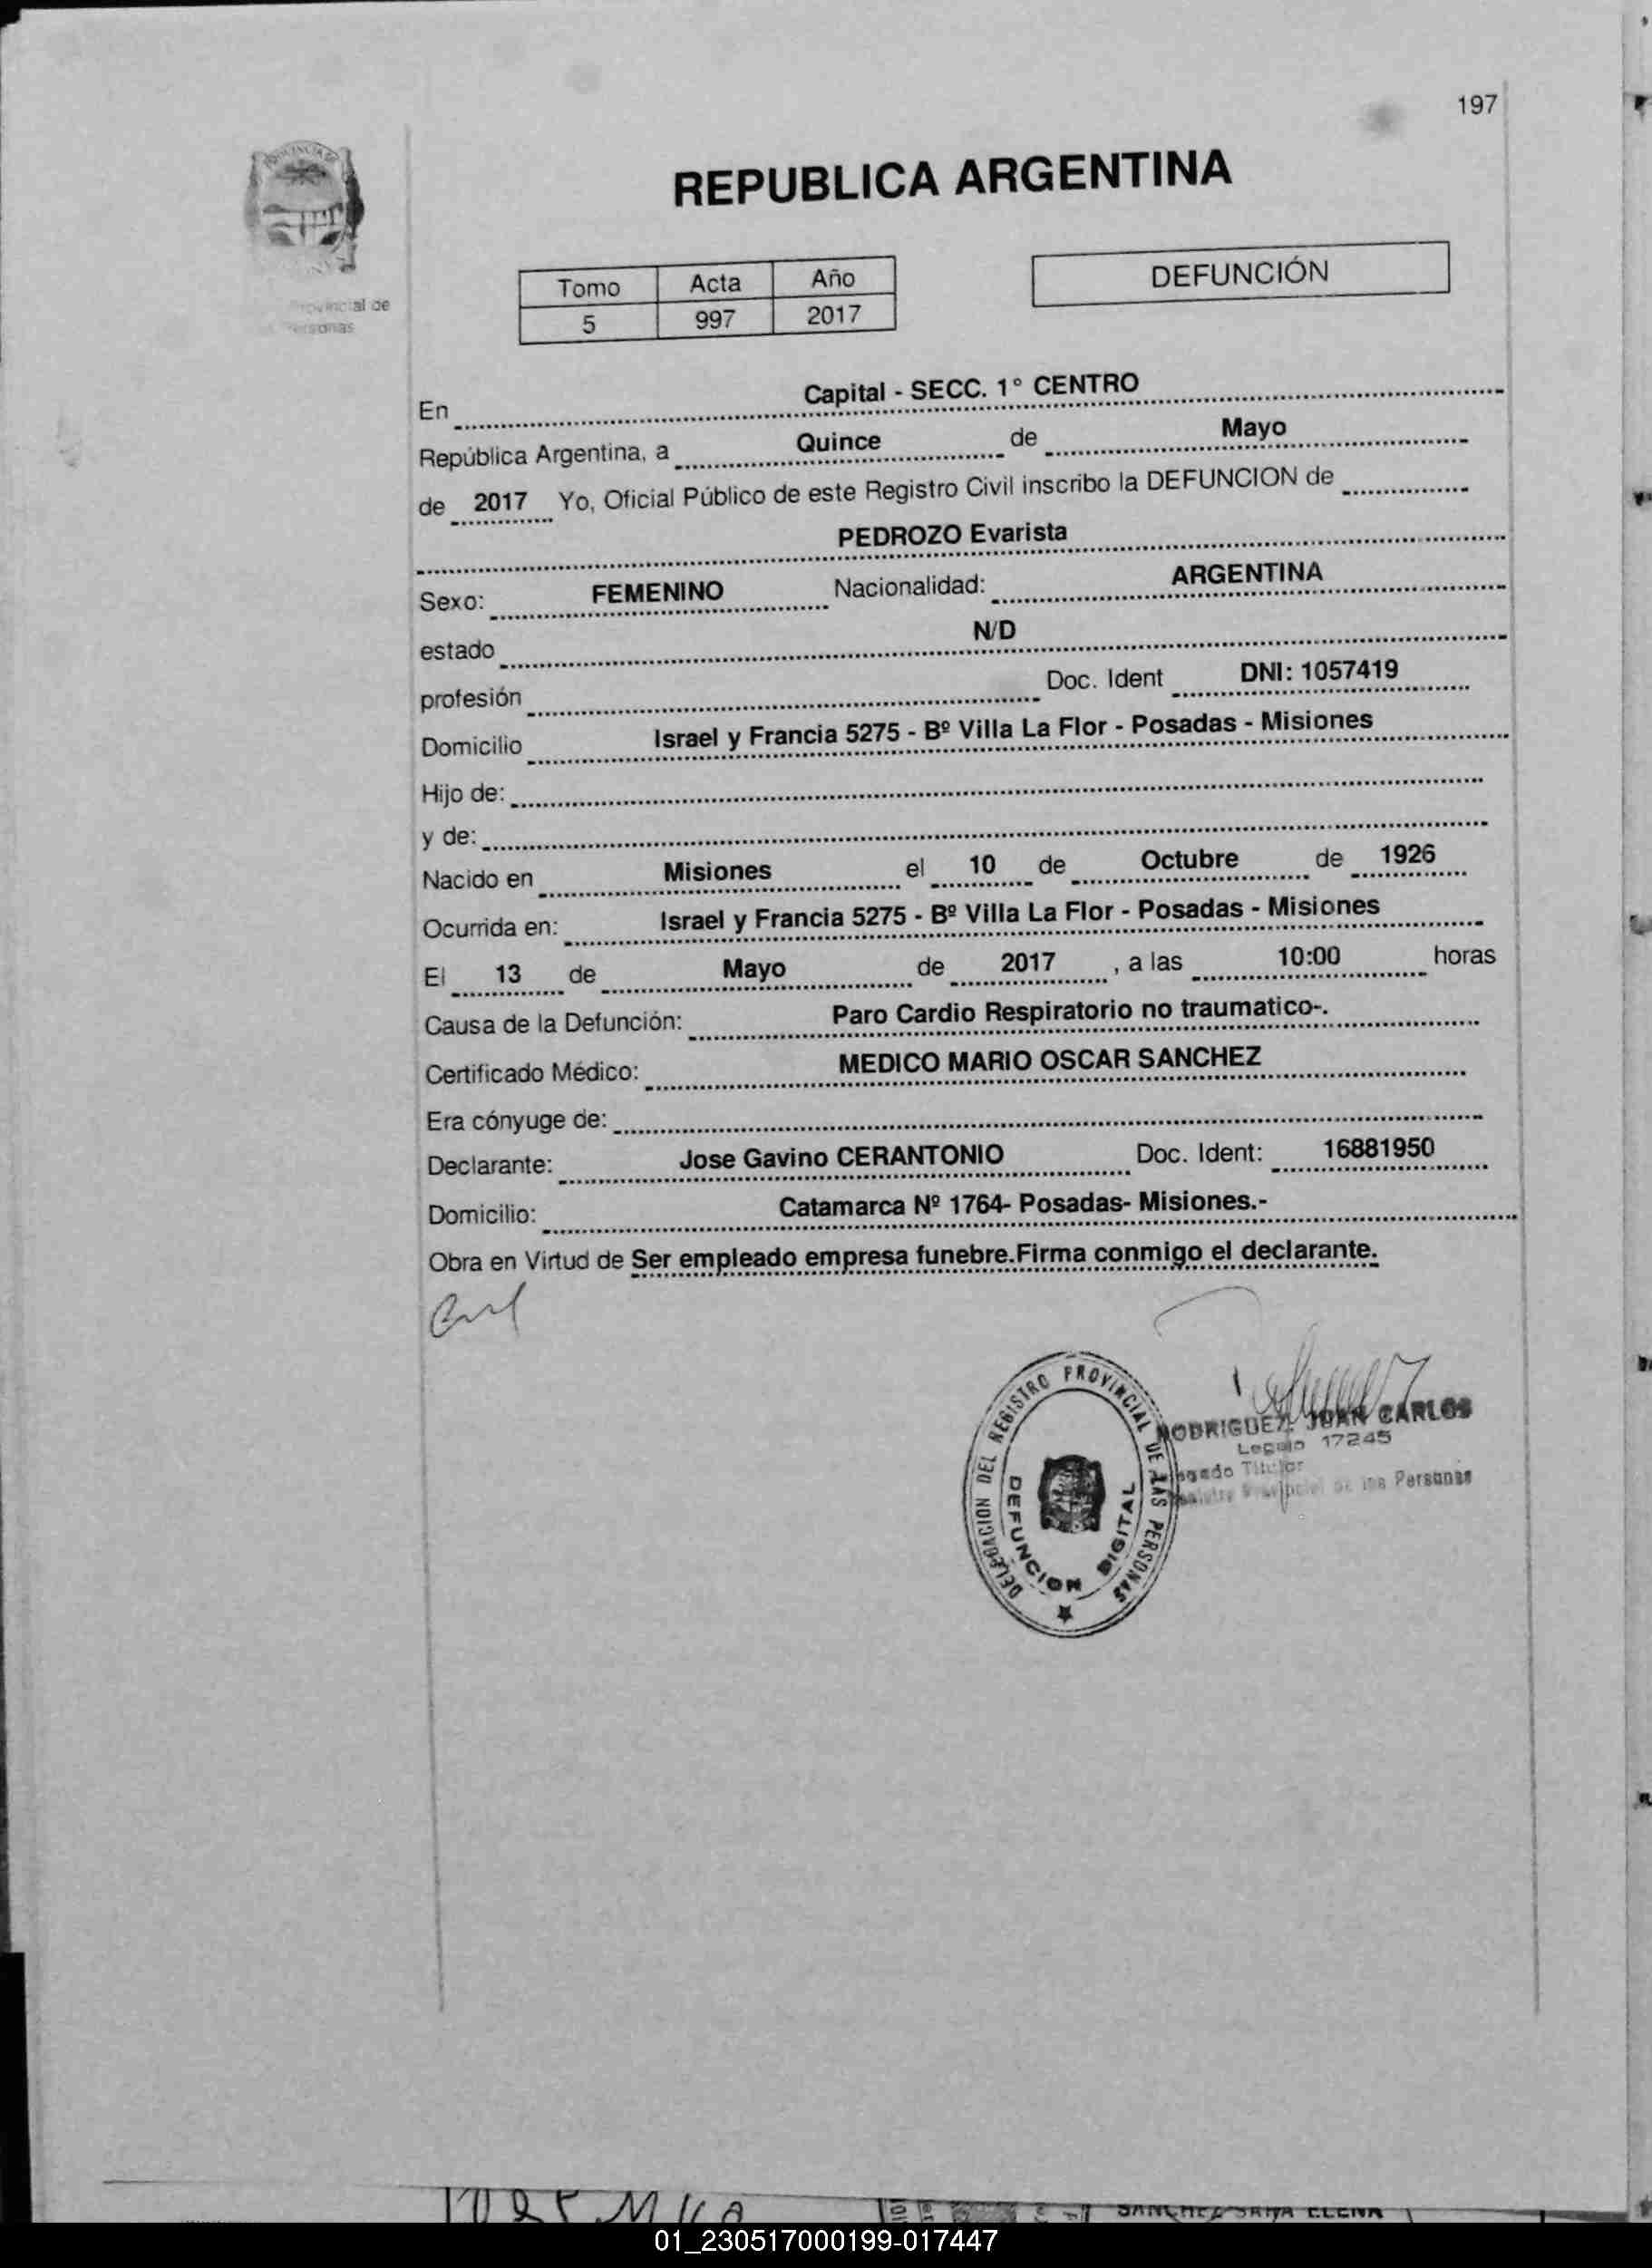 197
PROVINCIA DE
REPUBLICA ARGENTINA
Provincial de
Personas
Tomo Acta Año
5 997 2017
DEFUNCIÓN
En Capital - SECC. 1° CENTRO
República Argentina, a Quince de Mayo
de 2017 Yo, Oficial Público de este Registro Civil inscribo la DEFUNCION de
PEDROZO Evarista
Sexo: FEMENINO Nacionalidad: ARGENTINA
estado N/D
profesión Doc. Ident DNI: 1057419
Domicilio Israel y Francia 5275 - Bº Villa La Flor - Posadas - Misiones
Hijo de:
y de:
Nacido en Misiones el 10 de Octubre de 1926
Ocurrida en: Israel y Francia 5275 - Bº Villa La Flor - Posadas - Misiones
El 13 de Mayo de 2017 , a las 10:00 horas
Causa de la Defunción: Paro Cardio Respiratorio no traumatico-.
Certificado Médico: MEDICO MARIO OSCAR SANCHEZ
Era cónyuge de:
Declarante: Jose Gavino CERANTONIO Doc. Ident: 16881950
Domicilio: Catamarca Nº 1764- Posadas- Misiones.-
Obra en Virtud de Ser empleado empresa funebre.Firma conmigo el declarante.
DELEGACION DEL REGISTRO PROVINCIAL DE LAS PERSONAS
DEFUNCION DIGITAL
RODRIGUEZ JUAN CARLOS
Legajo 17245
Titular
de las Personas
01_230517000199-017447